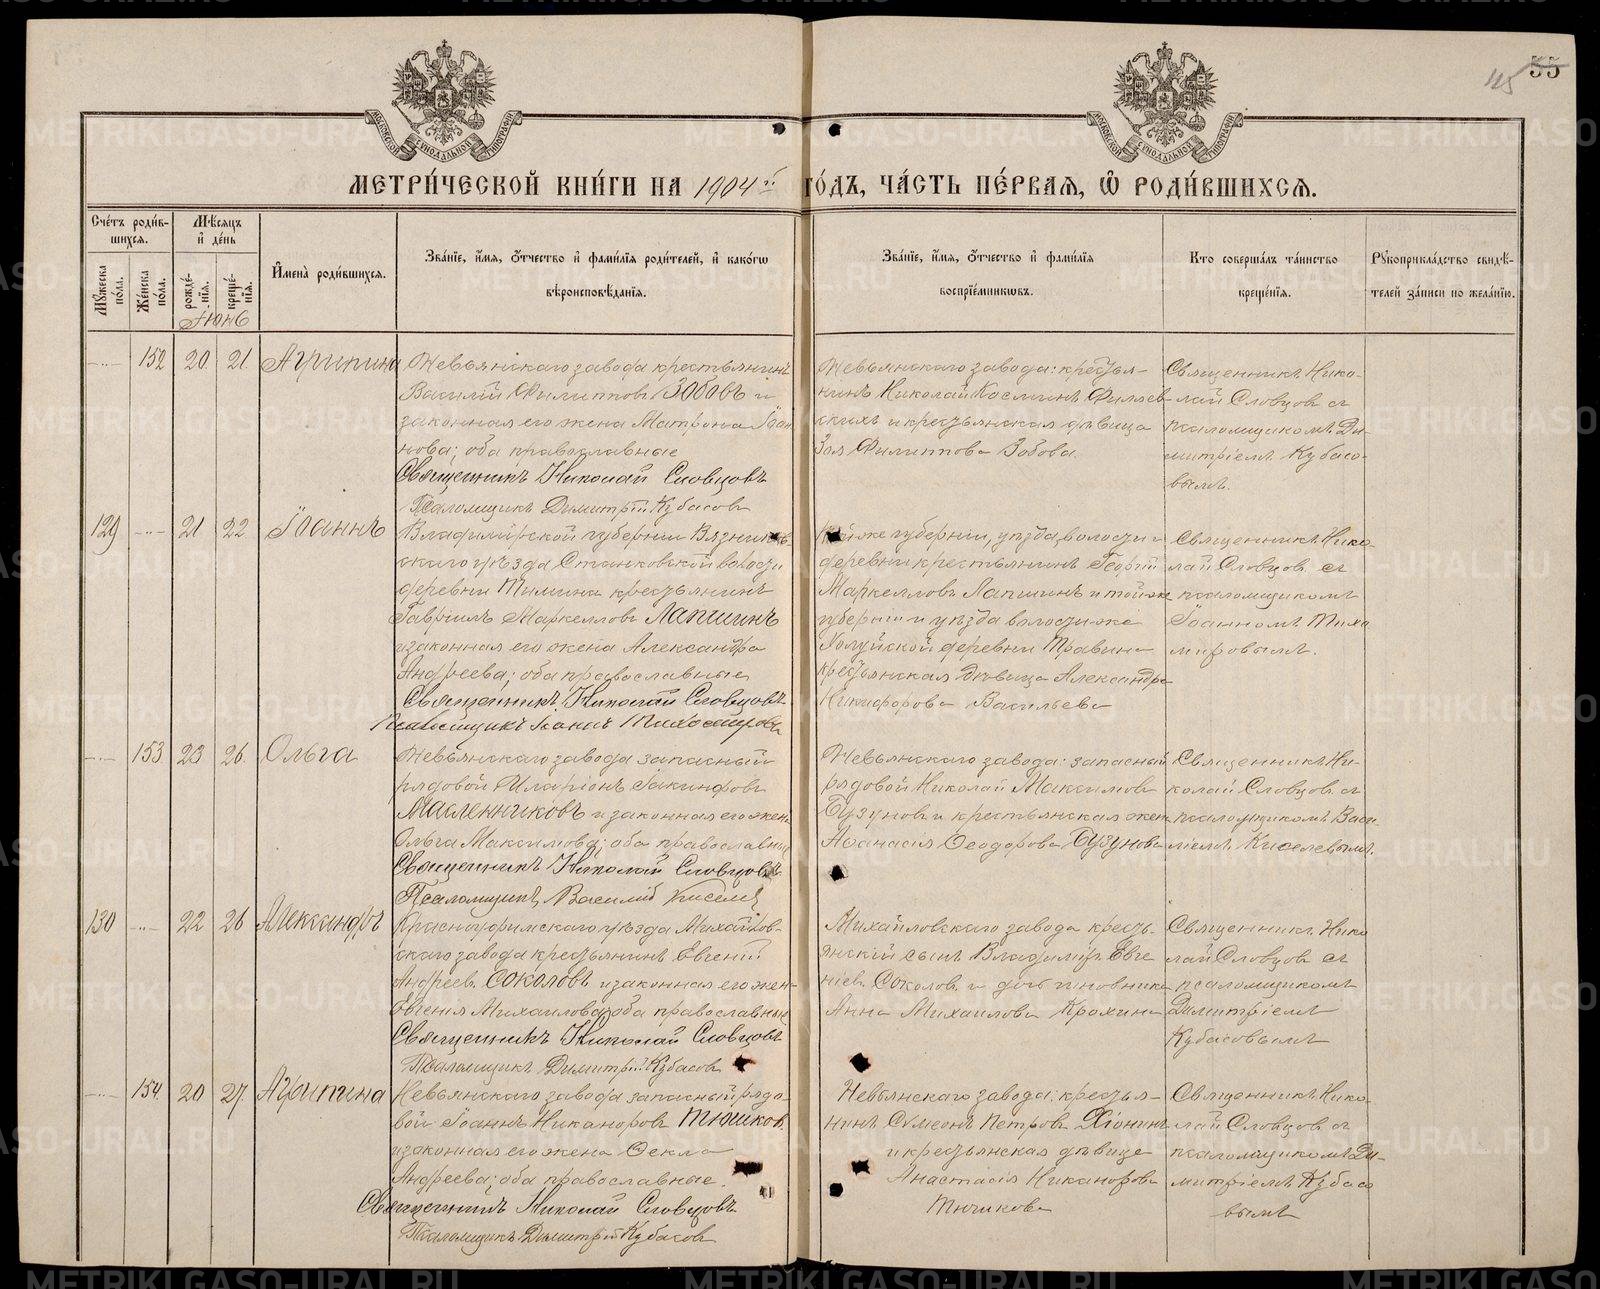 55
115
МЕТРИ́ЧЕСКОЙ КНИ́ГИ НА 1904й ГО́ДЪ, ЧА́СТЬ ПЕ́РВАЯ, Ѽ РОДИ́ВШИХСЯ.
Сче́тъ роди́в-
шихся.
Мѣ́сяцъ
и҆ де́нь
И҆мена̀ роди́вшихся.
Зва́нїе, и҆́мя, ѻ҆́тчество и҆ фами́лїѧ роди́телей, и҆ како́гѡ
вѣроисповѣ́данїѧ.
Зва́нїе, и҆́мя, ѻ҆́тчество и҆ фами́лїѧ
воспрїе́мниковъ.
Кто̀ соверша́лъ та́инство
креще́нїѧ.
Рꙋкоприкла́дство свидѣ́-
телей за́писи по жела́нїю.
Мꙋ́жеска
по́ла.
Же́нска
по́ла.
рожде́-
нїѧ.
креще́-
нїѧ.
Іюнь
152 20 21 Агрипина
Невьянскаго завода крестьянинъ
Василій Филипповъ Зобовъ и
законная его жена Матрона Іоан
нова; оба православные
Священникъ Николай Словцовъ
Псаломщикъ Димитрій Кубасовъ
Невьянскаго завода: крестья-
нинъ Николай Косминъ
и крестьянская дѣвица
Зоя Филиппова Зобова.
Священникъ Нико-
лай Словцовъ съ
псаломщикомъ Ди-
митріемъ Кубасо-
вымъ.
129 21 22 Іоаннъ
Владимірской губерніи Вязников-
скаго уѣзда, Станковской волости
деревни Тимина крестьянинъ
Гавріилъ Маркелловъ Лапшинъ
и законная его жена Александра
Андреева; оба православные
Священникъ Николай Словцовъ
Псаломщикъ Іоаннъ Тихомировъ
той же губерніи, уѣзда, волости и
деревни крестьянинъ Георгій
Маркелловъ Лапшинъ и той же
губерніи и уѣзда волости же
Холуйской деревни Травина
крестьянская дѣвица Александра
Никифорова Васильева
Священникъ Нико-
лай Словцовъ съ
псаломщикомъ
Іоанномъ Тихо
мировымъ.
153 23 26 Ольга
Невьянскаго завода запасный
рядовой Иларіонъ Іакинфовъ
Масленниковъ и законная его жена
Ольга Максимова; оба православные
Священникъ Николай Словцовъ
Псаломщикъ Василій Киселев
Невьянскаго завода: запасный
рядовой Николай Максимовъ
Бузуновъ и крестьянская жена
Аѳанасія Ѳеодорова Бузунова
Священникъ Ни-
колай Словцовъ съ
псаломщикомъ Васи-
ліемъ Киселевымъ.
130 22 26 Александръ
Красноуфимскаго уѣзда Михайлов-
скаго завода крестьянинъ Евгеній
Андреевъ Соколовъ и законная его жена
Евгенія Михаилова; оба православные
Священникъ Николай Словцовъ
Псаломщикъ Димитрій Кубасовъ
Михайловскаго завода кресть-
янскій сынъ Владиміръ Евге
ніевъ Соколовъ и дочь чиновника
Анна Михаилова Крохина
Священникъ Нико
лай Словцовъ съ
псаломщикомъ
Димитріемъ
Кубасовымъ
154 20 27 Агрипина
Невьянскаго завода запасный рядо-
вой Іоаннъ Никаноровъ Тюшковъ
и законная его жена Ѳекла
Андреева; оба православные.
Священникъ Николай Словцовъ
Псаломщикъ Димитрій Кубасовъ
Невьянскаго завода: крестья-
нинъ Сѵмеонъ Петровъ Хіонинъ
и крестьянская дѣвица
Анастасія Никанорова
Тюшкова
Священникъ Нико-
лай Словцовъ съ
псаломщикомъ Ди-
митріемъ Кубасо
вымъ
METRIKI.GASO-URAL.RU